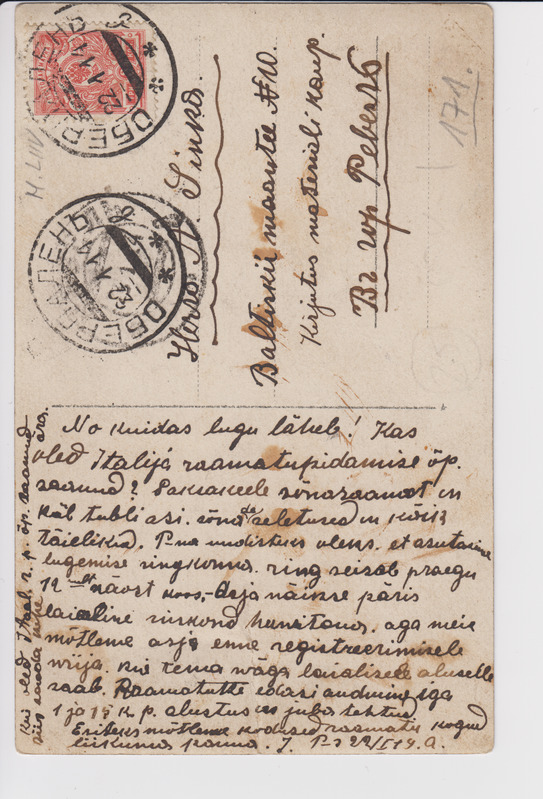 ОБЕРПАЛЕНЪ
22 1 14
ОБЕРПАЛЕНЪ
22 1 14
171.
Herra A. Sinka.
Baltiskii maantee № 10.
Kirjutus materiali kaup.
Въ гор Ревель
No kuidas lugu läheb! Kas
oled Italijä raamatupidamise õp.
saanud? Saksakeele sõnaraamat on
käl tubli asi. sõnade seletused on kõik
täielikud. P-na uudistuks oleks. et asutasime
lugemise ringkonna. ring seisab praegu
12 näost koos,- Asja näinse päris
laialine ruskond hunitanud. aga meie
mõtleme asja enne registreerimisele
wiija. kui tema wäga laialisele alusele
saab. Raamatutte edasi andmine iga
1 ja 15 k. p. alustus on juba tehtud
Esiteks mõtleme kodused raamatu kogud
liikuma panna. J. P-s 22/I 14. a.
Kui oled Ital. r. p. õp. saanud
siis saada mine ära.